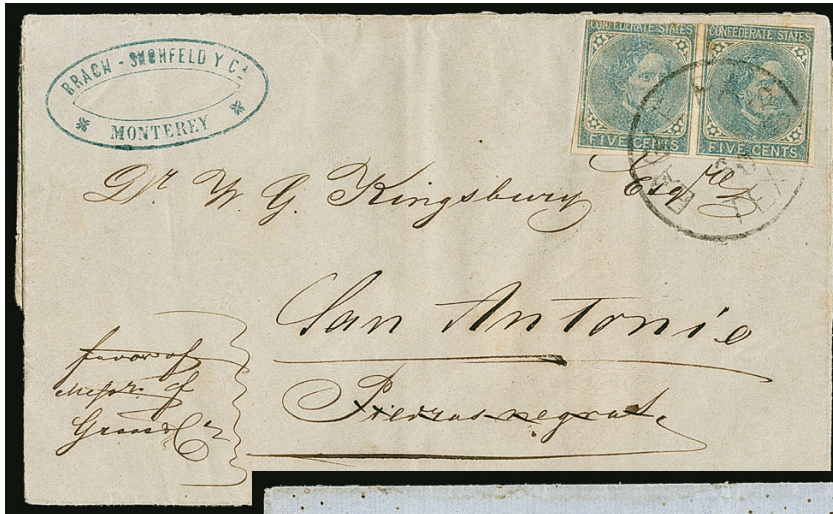 BRACH - SHÖNFELD Y Cª
MONTEREY
CONFEDERATE STATES
FIVE CENTS
CONFEDERATE STATES
FIVE CENTS
TEX
Dr. W. G. Kingsbury Esq
San Antonio
Piedras negras
favor of
Messrs. of